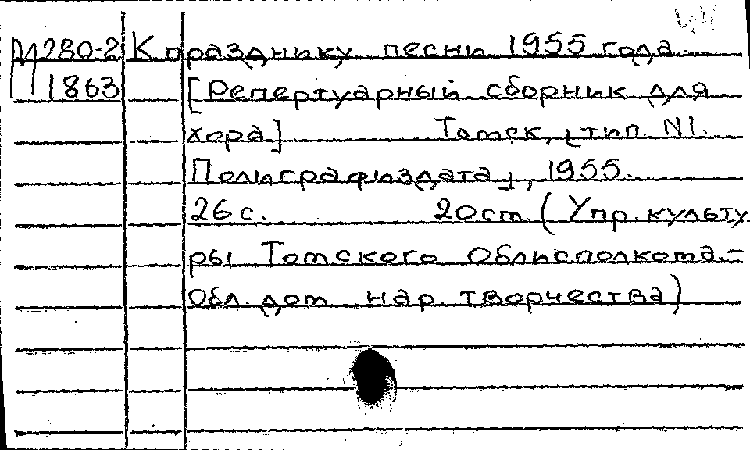 М280-2 К празднику песни 1955 года
1863 [Репертуарный сборник для
хора] Томск, [тип. N1.
Полиграфиздата], 1955.
26 с. 20 см (Упр. культу
ры Томского Облисполкома.-
Обл. дом нар. творчества)